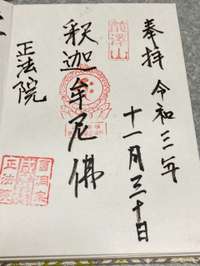 奉拝 令和三年
十一月三十日
釈迦牟尼佛
正法院